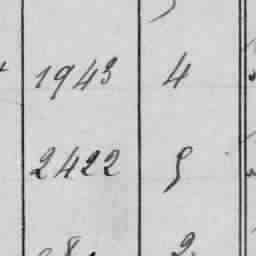 1943 4
2422 5